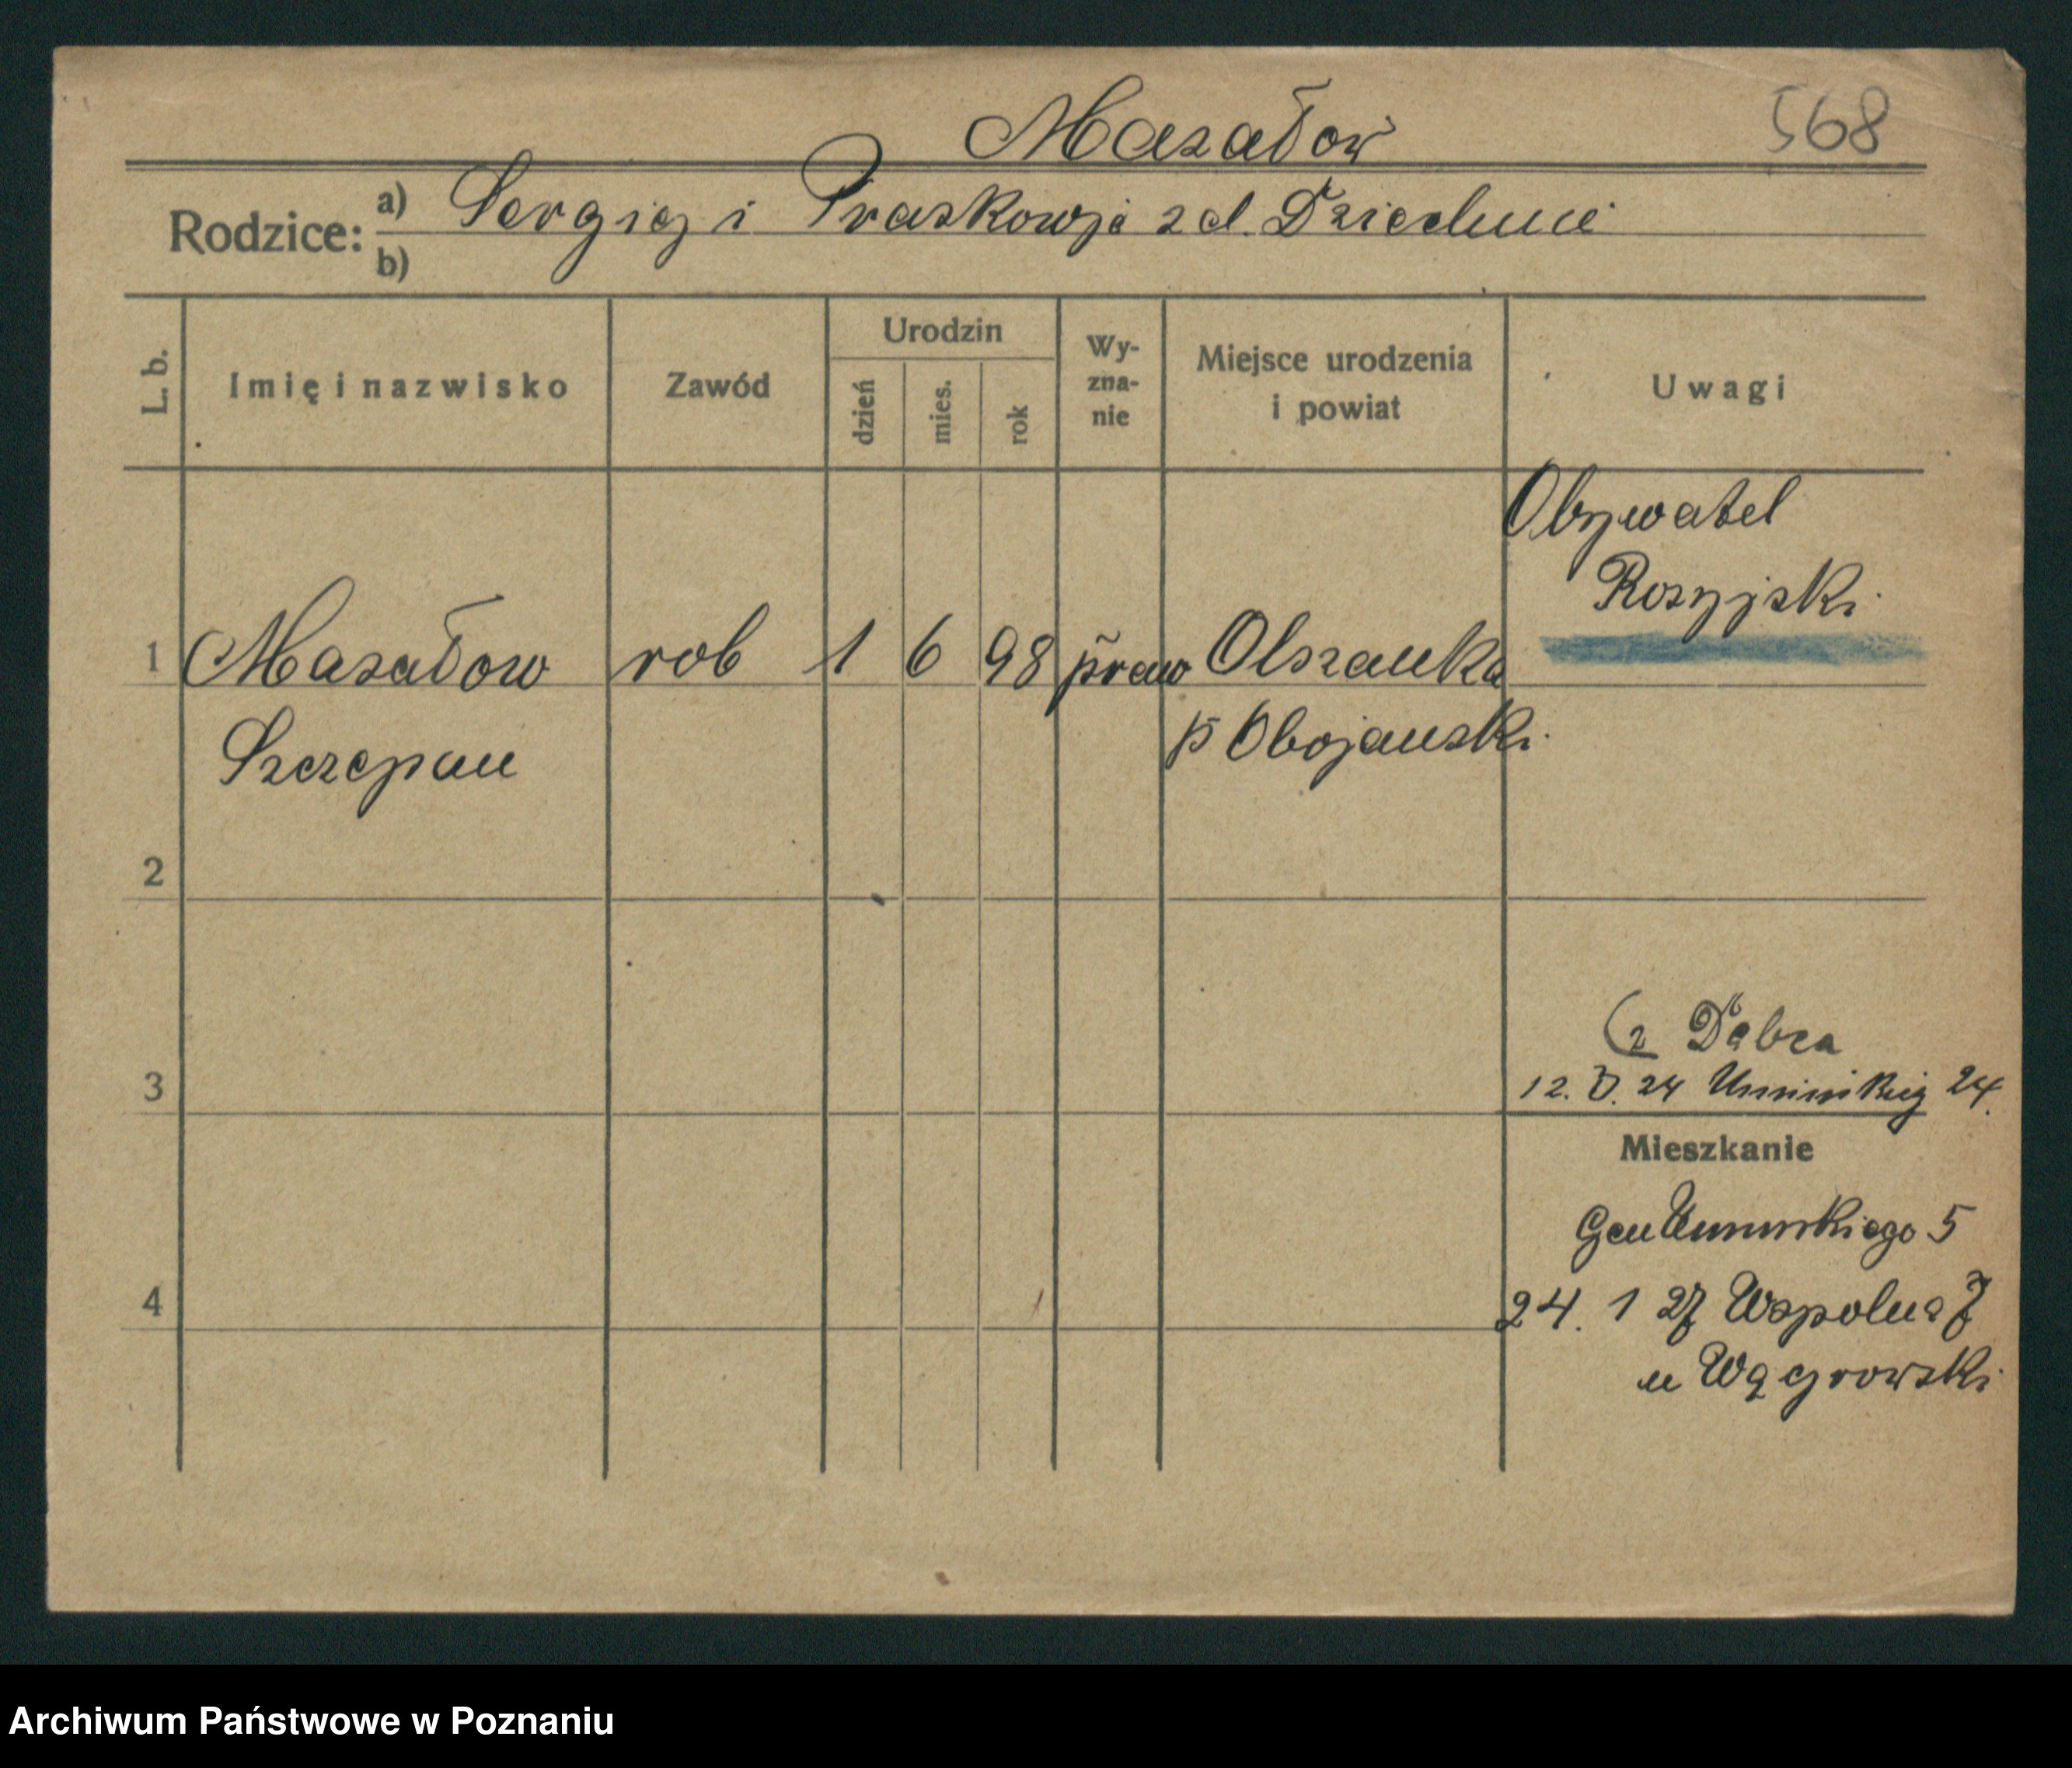 Masałow 568
Rodzice: a) Sergiej i Praskowja z d.
b)
L. b. Imię i nazwisko Zawód Urodzin dzień mies. rok Wy-zna-nie Miejsce urodzenia i powiat Uwagi
Obywatel
Rosyjski
1 Masałow rob 1 6 98 praw Olszanka
Szczepan p Obojanski
2
z Dębca
3 12. 24 24.
Mieszkanie
Gen Umińskiego 5
4 24. 1 27 Wspolna 7
u Wągrowski
Archiwum Państwowe w Poznaniu